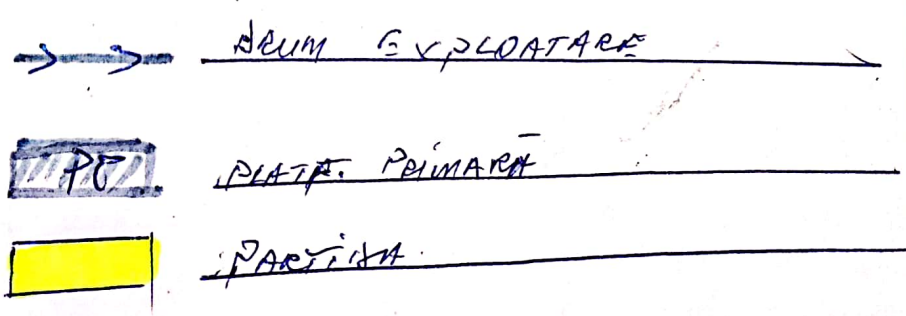 DRUM EXPLOATARE
PE PLATF. PRIMARĂ
PARTIDA